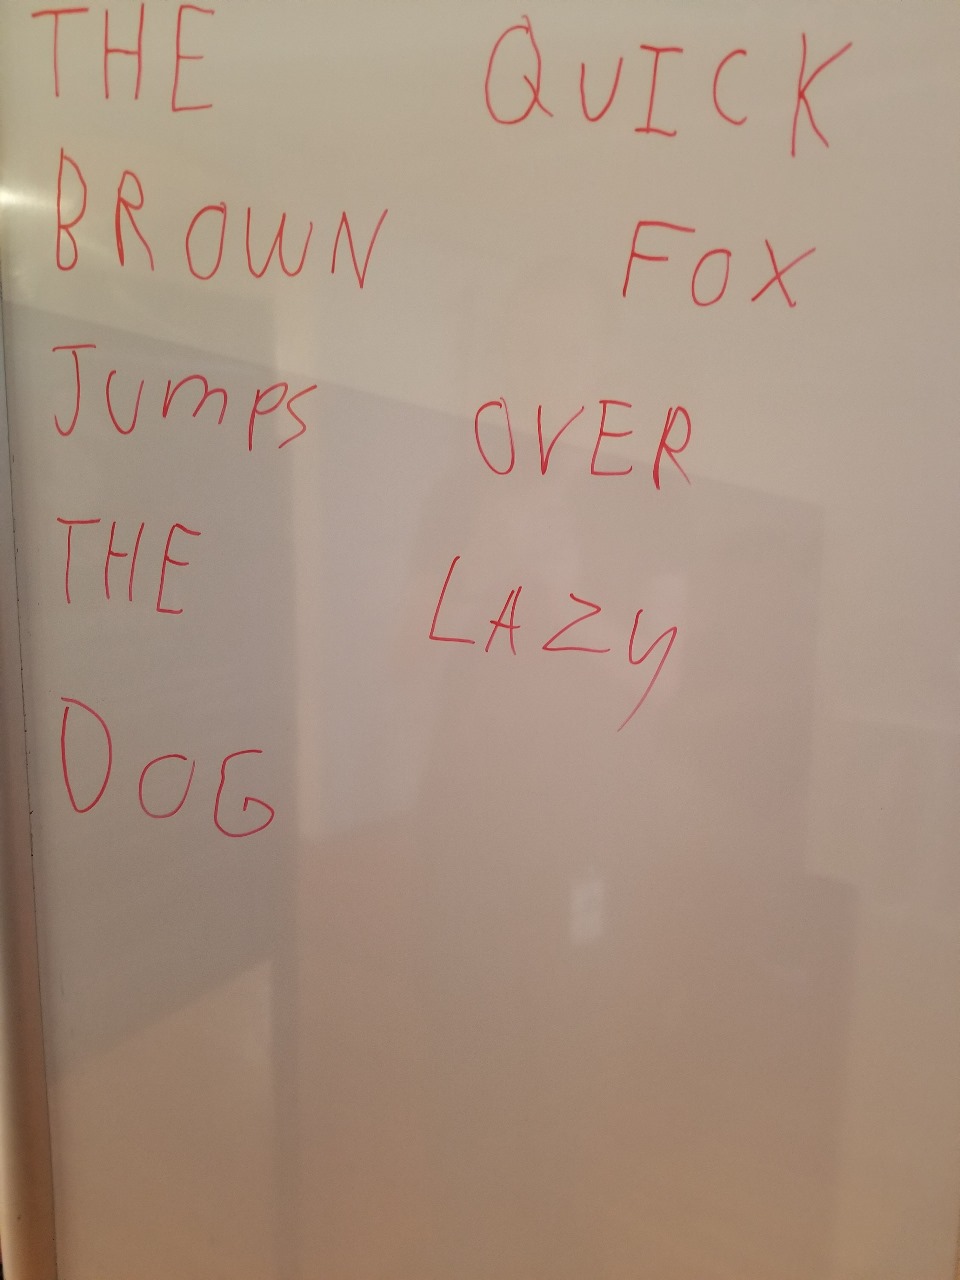 THE QUICK
BROWN FOX
JUMPS OVER
THE LAZY
DOG